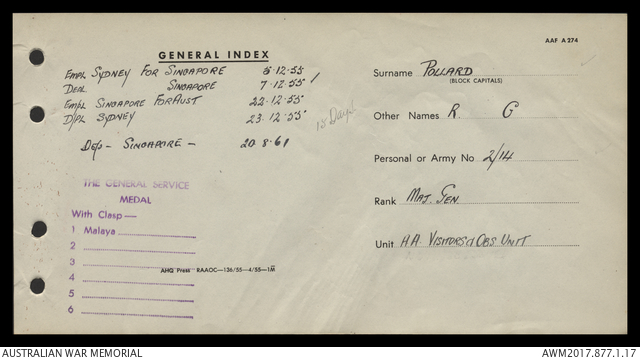 AAF A 274
GENERAL INDEX
EMPL SYDNEY FOR SINGAPORE 5·12·55
DEPL SINGAPORE 7·12·55
EMPL SINGAPORE FOR AUST 22·12·55
D/PL SYDNEY 23·12·55
15 Days
DEP - SINGAPORE - 20·8·61
THE GENERAL SERVICE
MEDAL
With Clasp —
1 Malaya
2
3
4
5
6
AHQ Press RAAOC—136/55—4/55—1M
Surname POLLARD
(BLOCK CAPITALS)
Other Names R. G
Personal or Army No 2/14
Rank MAJ. GEN.
Unit AA VISITORS & OBS UNIT
AUSTRALIAN WAR MEMORIAL
AWM2017.877.1.17